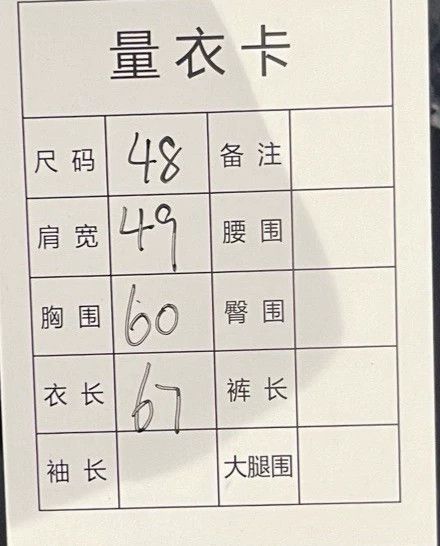 量衣卡
尺码 48 备注
肩宽 49 腰围
胸围 60 臀围
衣长 67 裤长
袖长 大腿围